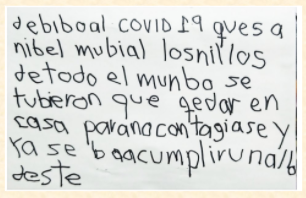 debiboal COVID 19 ques a
nibel mubial losnillos
detodo el munbo se
tubieron que qedar en
casa paranacontagiase y
ya se baacumpliruna
deste